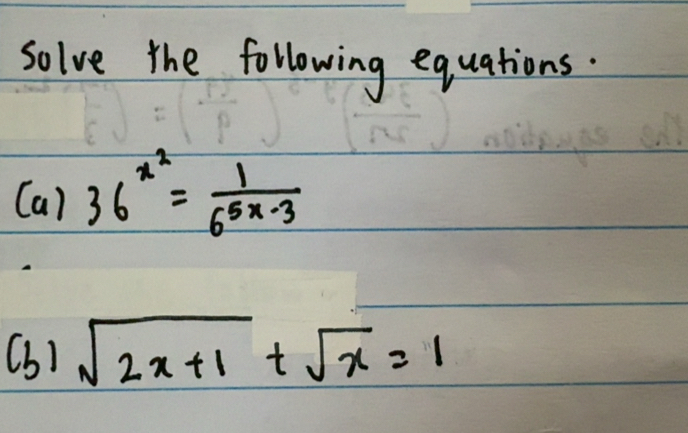 Solve the following equations.
(a) 36^{x^2} = \frac{1}{6^{5x-3}}
(b) \sqrt{2x+1} + \sqrt{x} = 1